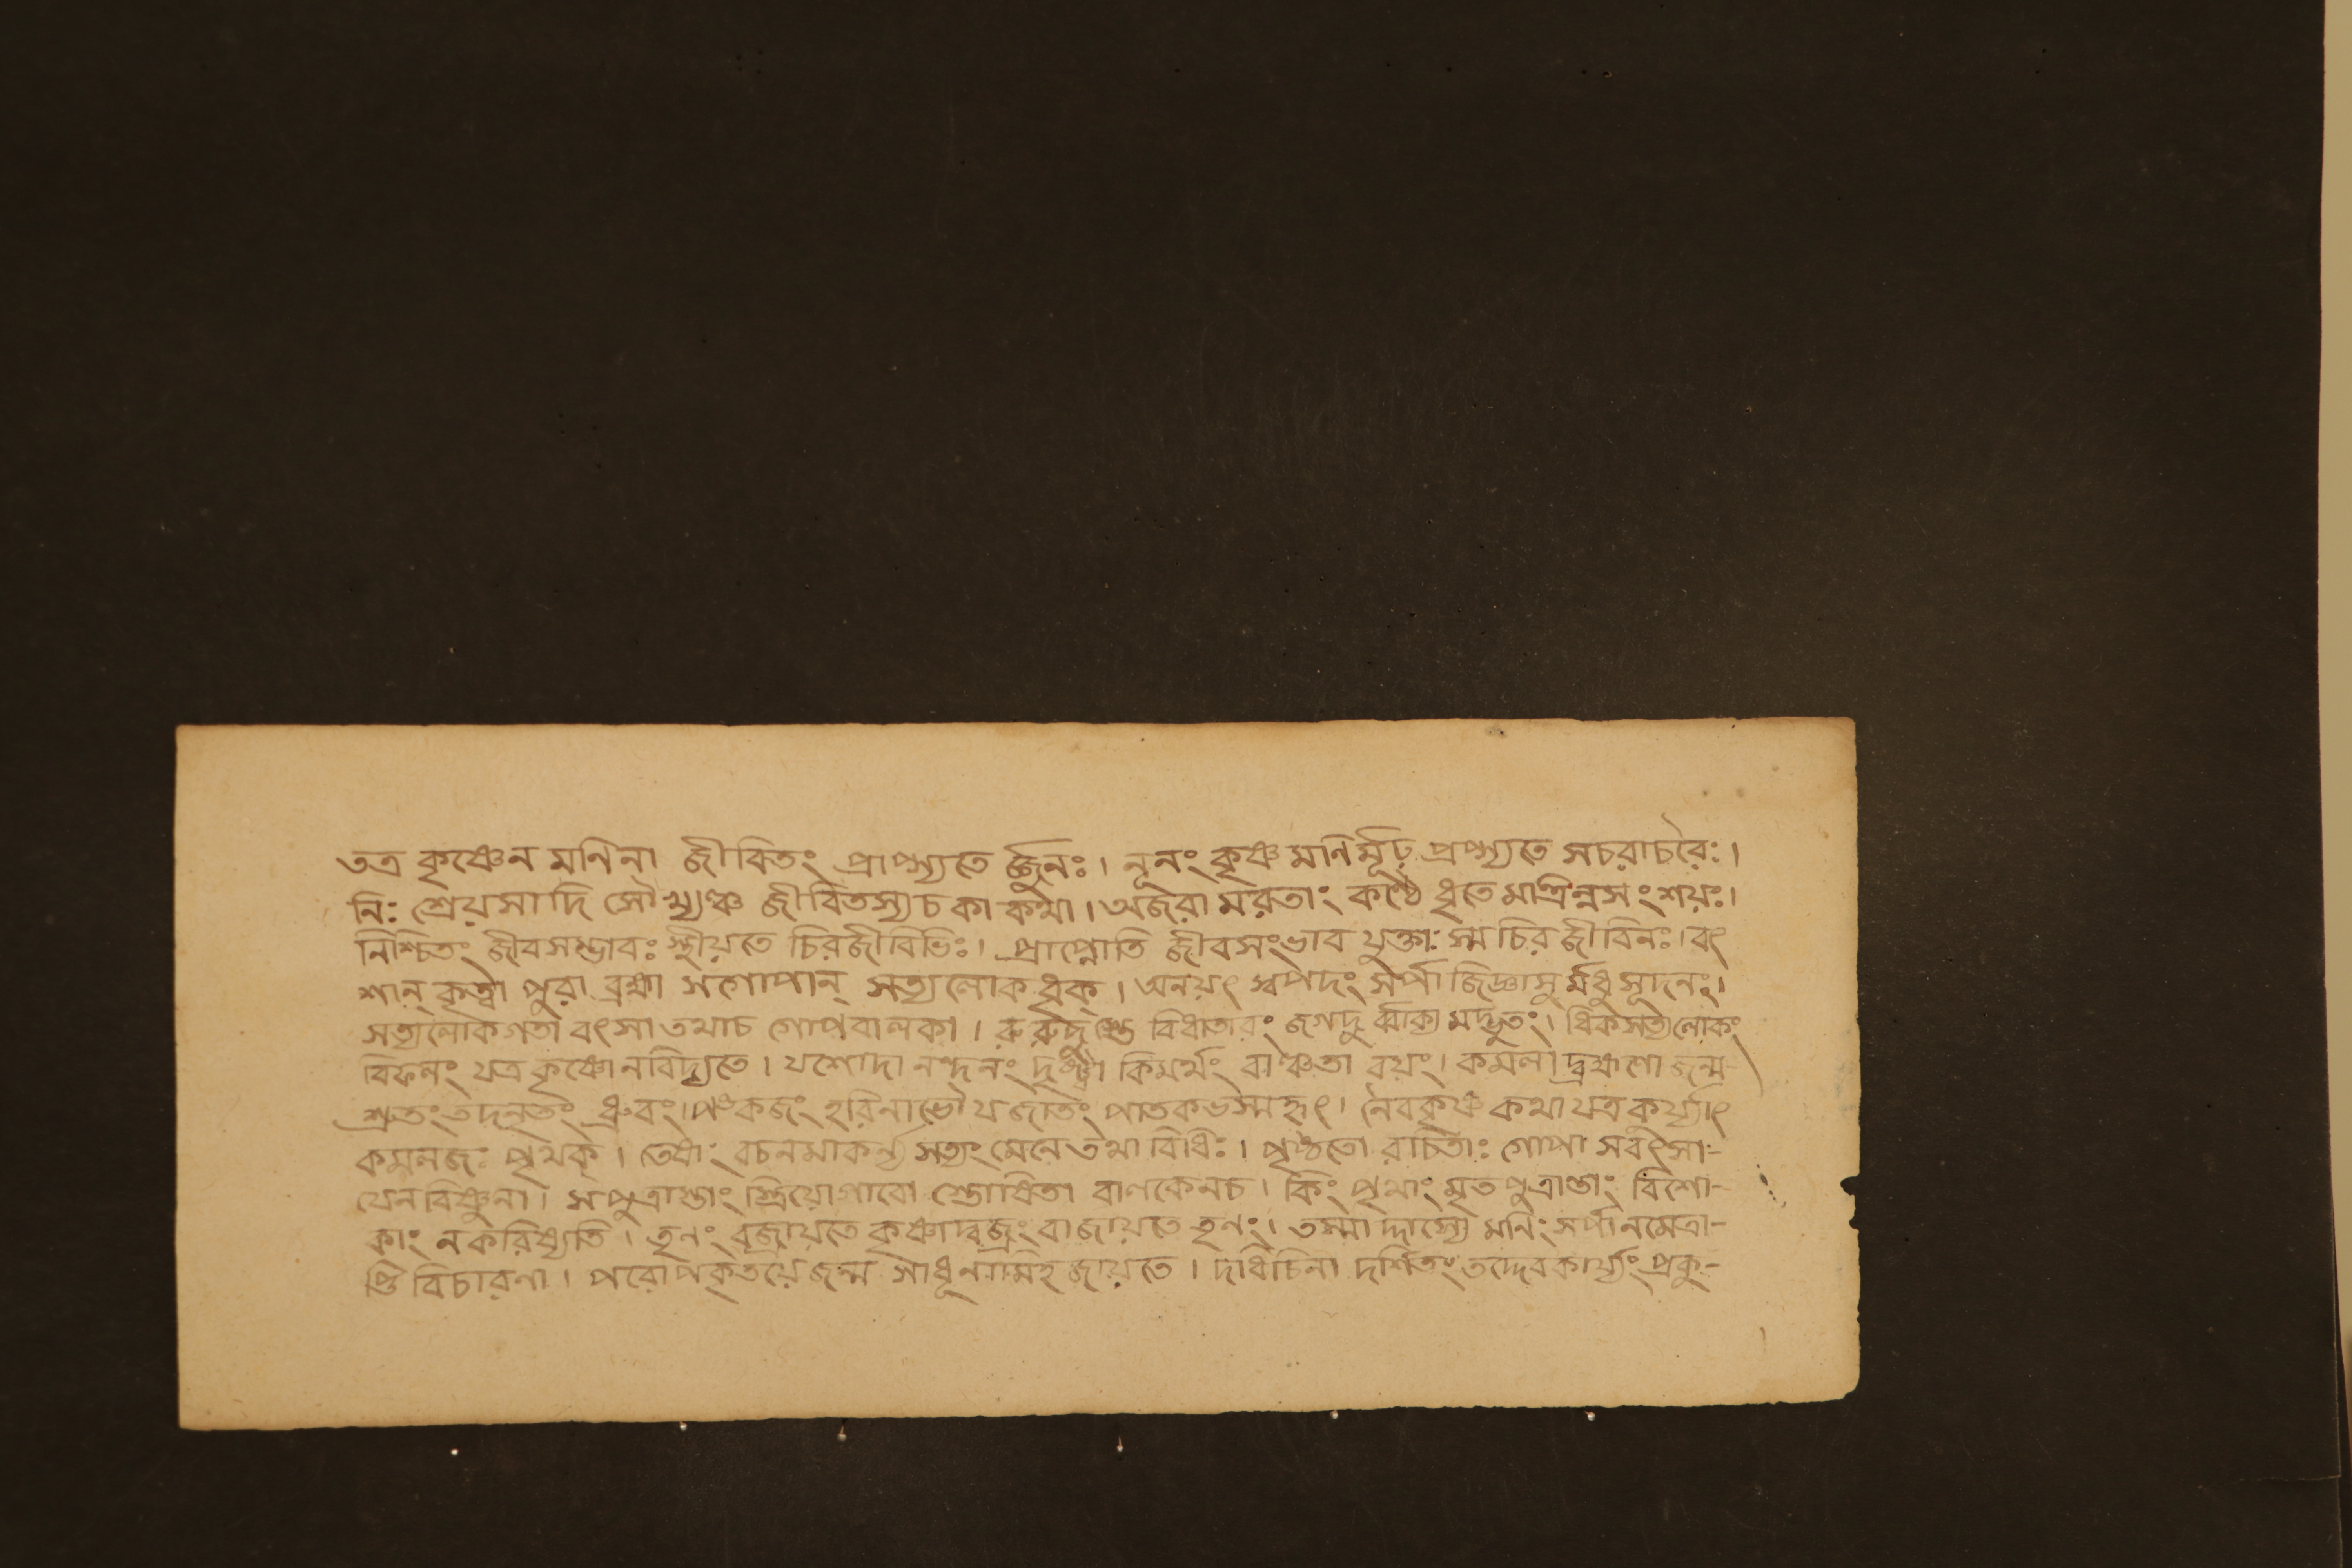 তত্র কৃষ্ণেন মনিনা জীবিতং প্রাপ্স্যতে র্জ্জুনঃ। নূনং কৃষ্ণ মনির্মূঢ় প্রপ্স্যতে সচরাচরৈঃ।
নিঃ শ্রেয়সাদি সৌখ্যঞ্চ জীবিতস্যচ কা কথা। অজরা মরতাং কণ্ঠে ধৃতে মাত্রিন্নসংশয়ঃ।
নিশ্চিতং জীবসম্ভাবঃ স্থীয়তে চিরজীবিভিঃ। প্রাপ্নোতি জীবসংভাব যুক্তাঃ স্ম চির জীবিনঃ। বং
শান্ কৃত্বা পুরা ব্রহ্মা সগোপান্ সত্যলোক ধৃক্। অনয়ৎ স্বপদং সর্পা জিজ্ঞাসু র্মধু সূদনং।
সত্যলোকগতা বৎসা তথাচ গোপবালকা। বিধাতারং জগদু র্ব্বাক্য মদ্ভুতং। ধিকসত্যলোকং
বিফলং যত্র কৃষ্ণোনবিদ্যতে। যশোদা নন্দনং দৃষ্ট্বা কিমর্থং বাঞ্চিতা বয়ং। কমলা দ্ব্রহ্মণো জন্ম-
শ্রুতং তদনৃতং ধ্রুবং। পঙ্কজং হরিনাভৌ যজাতং পাতকভস্মহৃৎ। নৈবকৃষ্ণ কথা যত্র কুর্য্যাৎ
কমলজঃ পৃথক্। তেষাং বচনমাকর্ন্য সত্যং মেনে তথা বিধিঃ। পৃষ্ঠতো রচিতাঃ গোপা সবৎসা-
যেন বিষ্ণুনা। সপুত্রাস্তাং স্ত্রিয়োগাবো স্তোষিতা বালকেনচ। কিং পৃথাং মৃত পুত্রাস্তাং বিশো-
কাং নকরিষ্যতি। তৃনং বৃজায়তে কৃষ্ণাদ্বজ্রং বাজায়তে তৃনং। তস্মা দ্দাস্যে মনিং সর্পা নমেত্রা-
স্তি বিচারণা। পরোপকৃতয়েজন্ম সাধূনামিহ জায়তে। দধিচিনা দর্শিতং তদ্দেবকার্য্যং প্রকু-